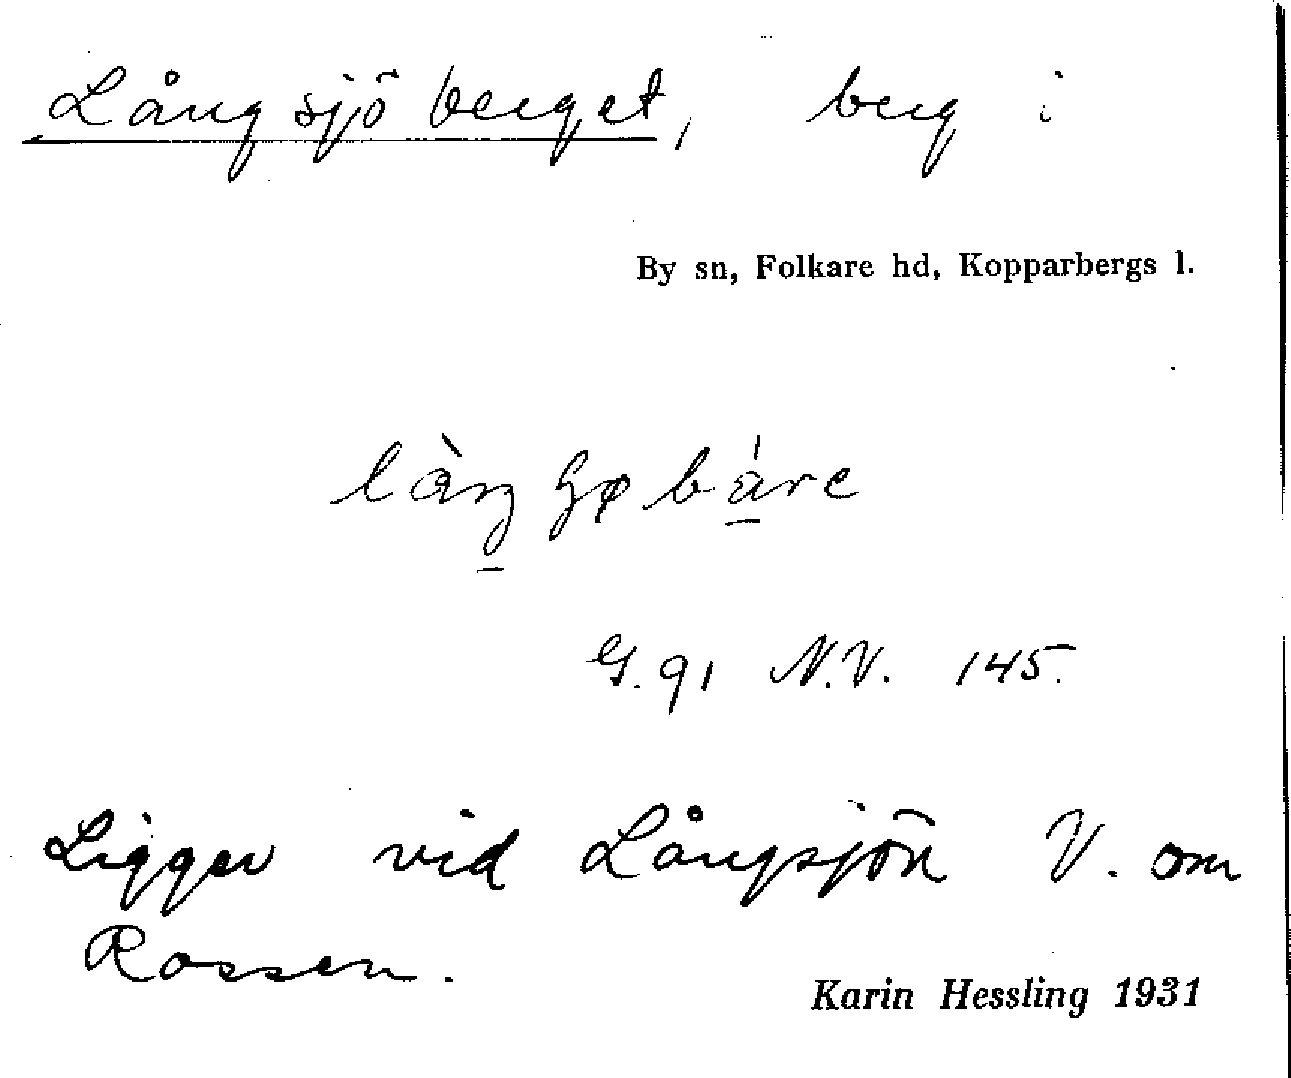 Långsjöberget, berg i
By sn, Folkare hd, Kopparbergs l.
G. 91 N.V. 145.
Ligger vid Långsjön V. om
Rossen.
Karin Hessling 1931